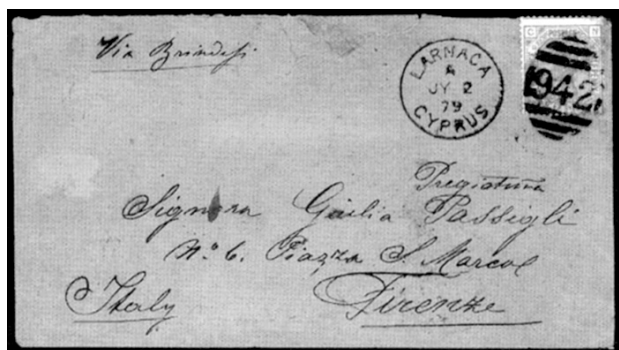 Via Brindesi
LARNACA
A
JY 2
79
CYPRUS
942
Pregiatma
Signora Giulia Passigli
No. 6. Piazza S. Marco
Italy Firenze